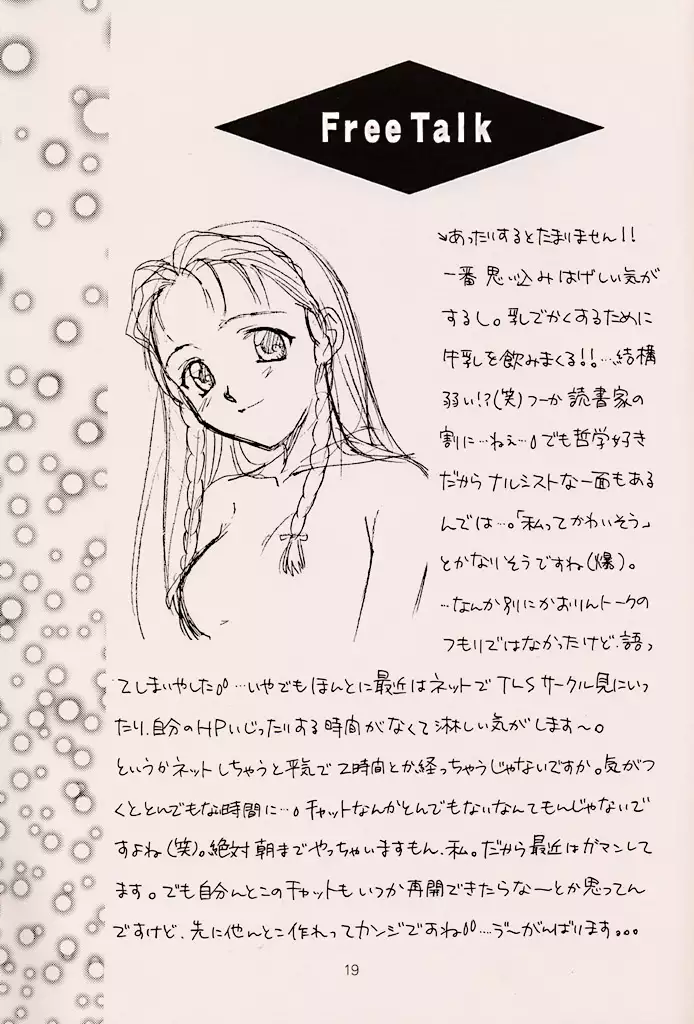 Free Talk
↘あったりするとたまりません!!
一番思い込みはげしい気が
するし。乳でかくするために
牛乳を飲みまくる!!…結構
弱い!?(笑)つーか読書家の
割に…ねぇ…。でも哲学好き
だからナルシストな一面もある
んでは…。「私ってかわいそう」
とかなりそうですね(爆)。
…なんか別にかおりんトークの
つもりではなかったけど、語っ
てしまいやした…いやでもほんとに最近はネットでTLSサークル見にいっ
たり、自分のHPいじったりする時間がなくて淋しい気がします〜。
というかネットしちゃうと平気で2時間とか経っちゃうじゃないですか。気がつ
くととんでもな時間に…。チャットなんかとんでもないなんてもんじゃないで
すよね(笑)。絶対朝までやっちゃいますもん、私。だから最近はガマンして
ます。でも自分んとこのチャットもいつか再開できたらな〜とか思ってん
ですけど、先に他んとこ作れってカンジですね…う〜がんばります。。。
19